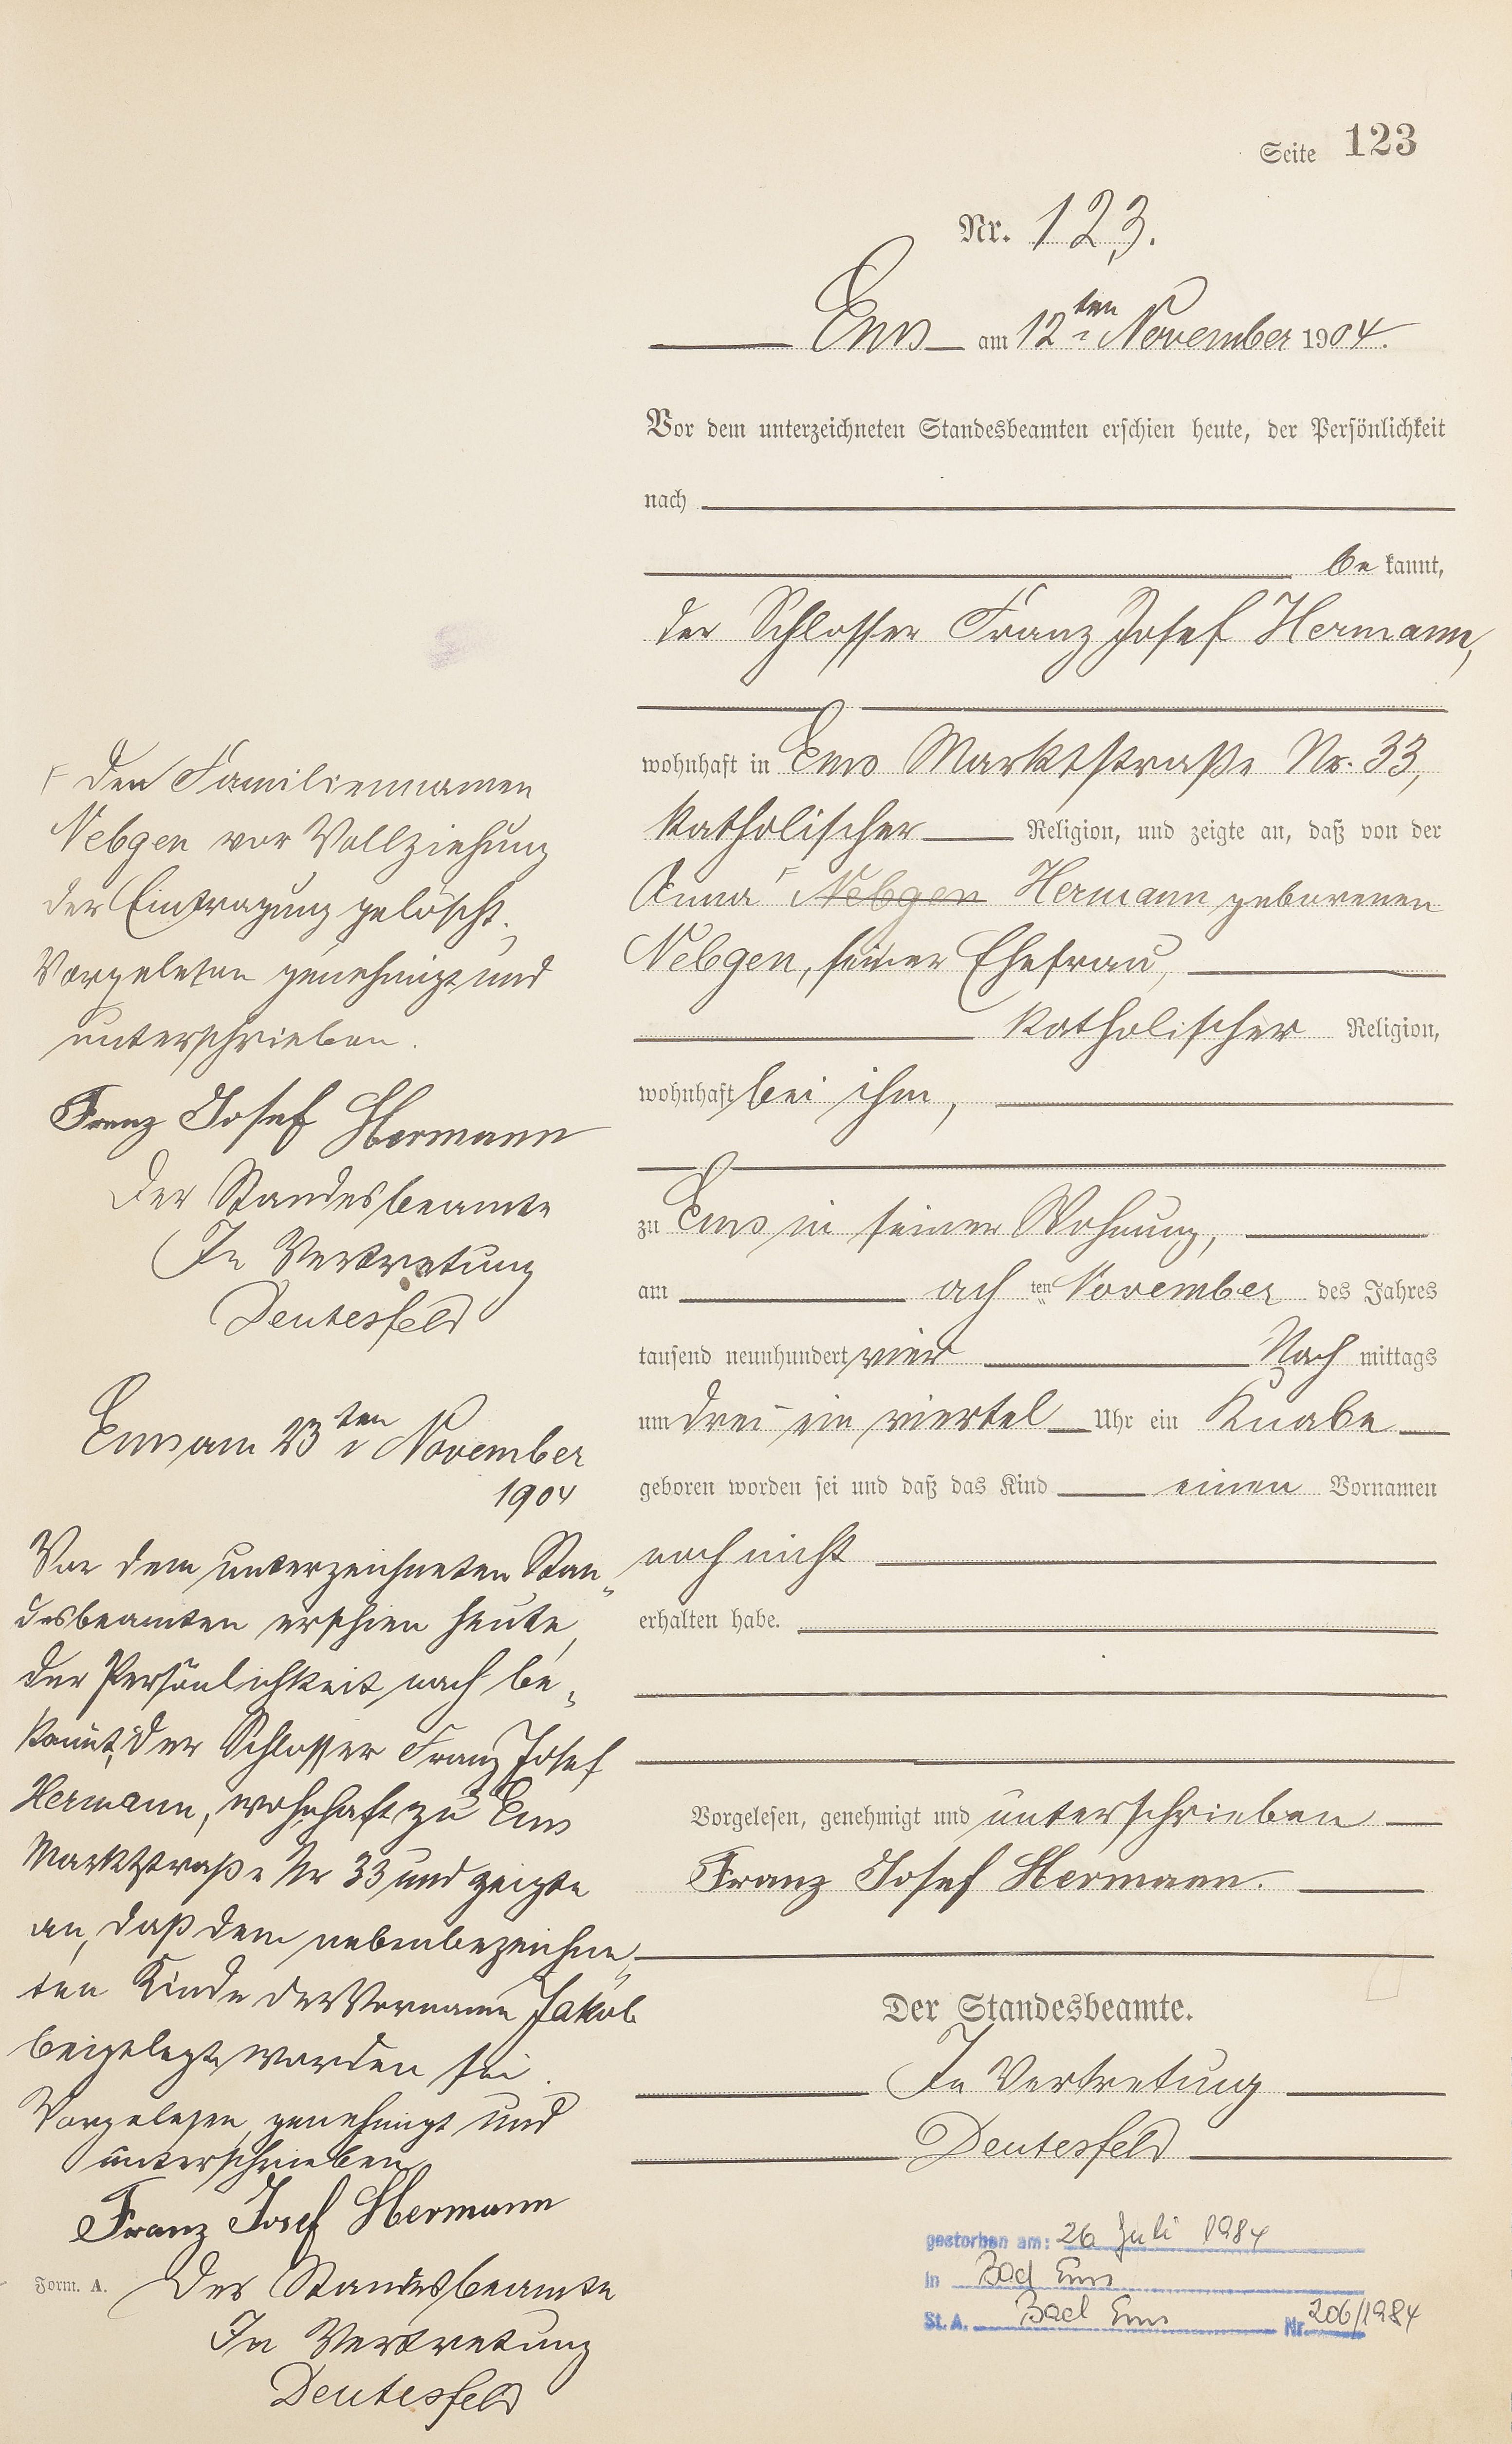 Seite 123
Nr. 123.
Ems am 12ten November 1904.
Vor dem unterzeichneten Standesbeamten erschien heute, der Persönlichkeit
nach
be kannt,
der Schlosser Franz Josef Hermann,
wohnhaft in Ems Marktstraße Nr. 33,
katholischer Religion, und zeigte an, daß von der
Anna Γ Nebgen Hermann geborenen
Nebgen, seiner Ehefrau,
katholischer Religion,
wohnhaft bei ihm,
zu Ems in seiner Wohnung,
am ach ten November des Jahres
tausend neunhundert vier Nach mittags
um drei ein viertel Uhr ein Knabe
geboren worden sei und daß das Kind einen Vornamen
noch nicht
erhalten habe.
Vorgelesen, genehmigt und unterschrieben
Franz Josef Hermann.
Der Standesbeamte.
In Vertretung
Deutesfeld
Γ Den Familiennamen
Nebgen vor Vollziehung
der Eintragung gelöscht.
Vorgelesen genehmigt und
unterschrieben.
Franz Josef Hermann
Der Standesbeamte
In Vertretung
Deutesfeld
Ems am 23ten November
1904
Vor dem unterzeichneten Stan„
desbeamten erschien heute,
der Persönlichkeit nach be„
kannt, der Schlosser Franz Josef
Hermann, wohnhaft zu Ems
Marktstraße Nr 33 und zeigte
an, daß dem nebenbezeichne„
ten Kinde der Vorname Jakob
beigelegt worden sei.
Vorgelesen, genehmigt und
unterschrieben
Franz Josef Hermann
Der Standesbeamte
In Vertretung
Deutesfeld
Form. A.
gestorben am: 26 Juli 1984
in Bad Ems
St. A. Bad Ems Nr. 206/1984